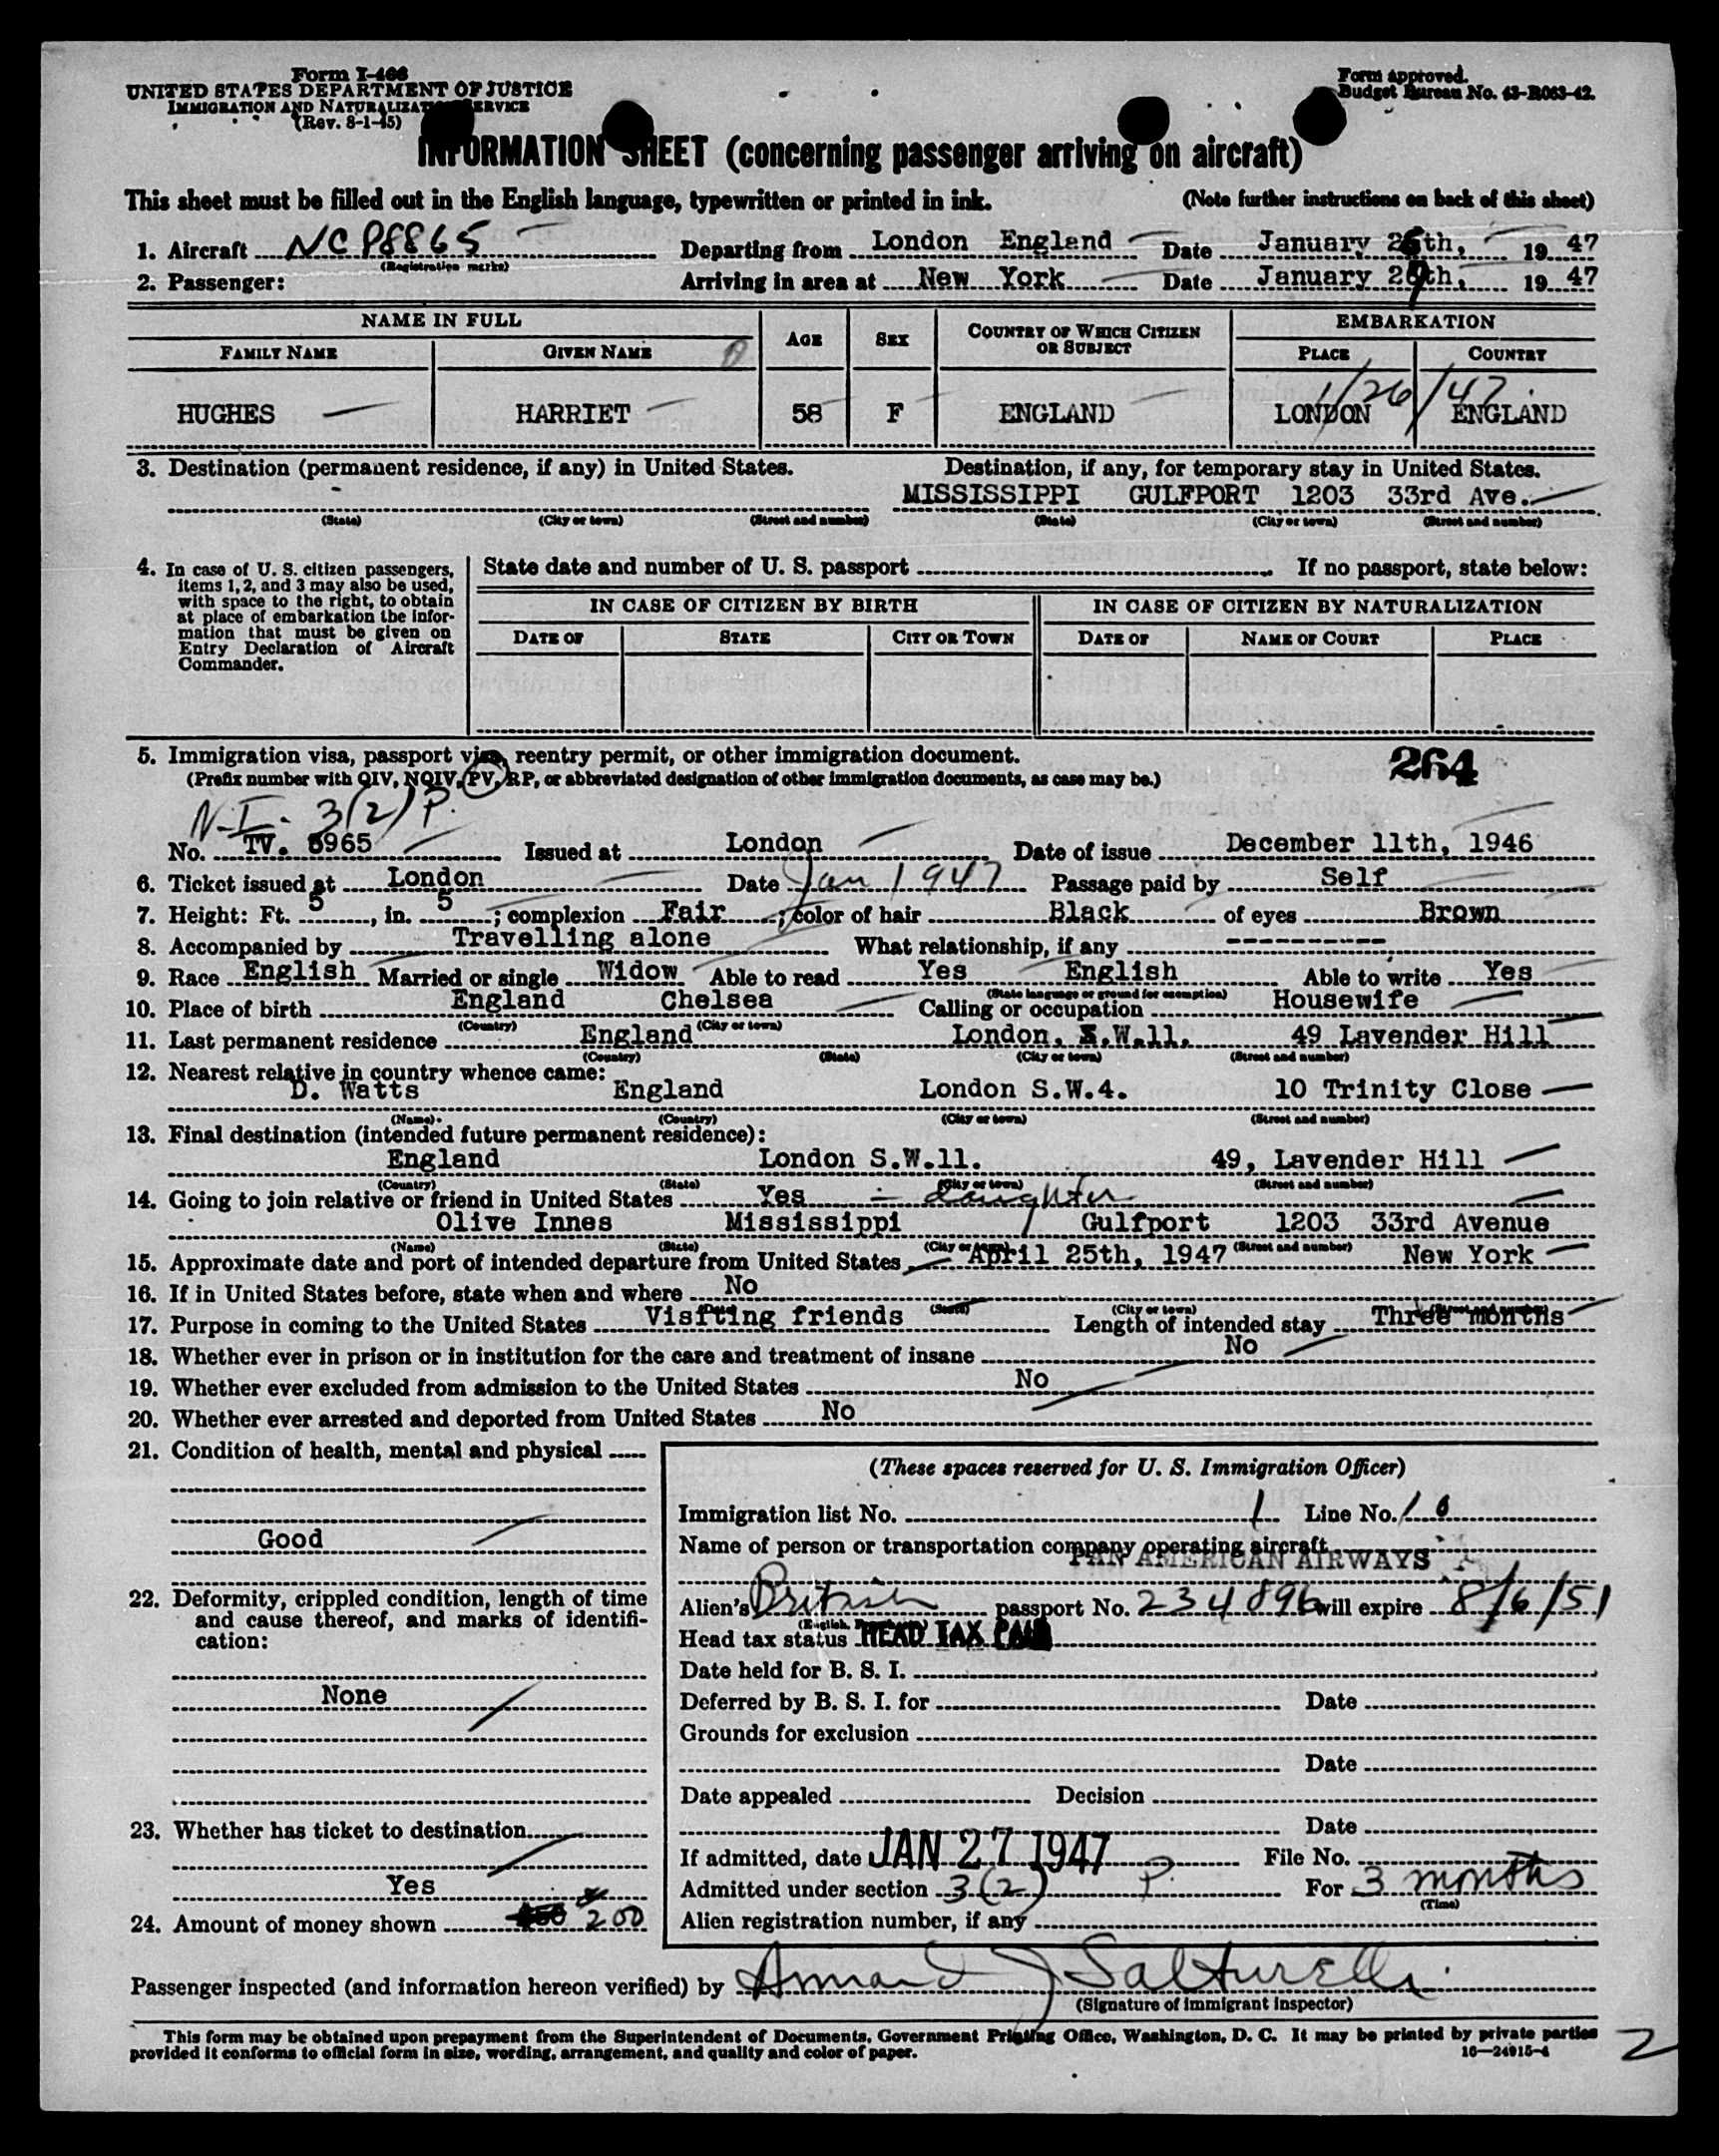 Form I-466
UNITED STATES DEPARTMENT OF JUSTICE
IMMIGRATION AND NATURALIZATION SERVICE
(Rev. 8-1-45)
Form approved.
Budget Bureau No. 43-R063-42.
INFORMATION SHEET (concerning passenger arriving on aircraft)
This sheet must be filled out in the English language, typewritten or printed in ink. (Note further instructions on back of this sheet)
1. Aircraft NC 88865 Departing from London England Date January 26th, 1947
(Registration marks)
2. Passenger: Arriving in area at New York Date January 27th, 1947
NAME IN FULL AGE SEX COUNTRY OF WHICH CITIZEN OR SUBJECT EMBARKATION
FAMILY NAME GIVEN NAME PLACE COUNTRY
1/26/47
HUGHES HARRIET 58 F ENGLAND LONDON ENGLAND
3. Destination (permanent residence, if any) in United States. Destination, if any, for temporary stay in United States.
- MISSISSIPPI GULFPORT 1203 33rd Ave.
(State) (City or town) (Street and number) (State) (City or town) (Street and number)
4. In case of U. S. citizen passengers, items 1, 2, and 3 may also be used, with space to the right, to obtain at place of embarkation the information that must be given on Entry Declaration of Aircraft Commander.
State date and number of U. S. passport If no passport, state below:
IN CASE OF CITIZEN BY BIRTH IN CASE OF CITIZEN BY NATURALIZATION
DATE OF STATE CITY OR TOWN DATE OF NAME OF COURT PLACE
5. Immigration visa, passport visa, reentry permit, or other immigration document. 264
(Prefix number with QIV, NQIV, PV, RP, or abbreviated designation of other immigration documents, as case may be.)
N-I- 3(2) P.
No. TV. 5965 Issued at London Date of issue December 11th, 1946
6. Ticket issued at London Date Jan 1947 Passage paid by Self
7. Height: Ft. 5, in. 5; complexion Fair; color of hair Black of eyes Brown
8. Accompanied by Travelling alone What relationship, if any ----------
9. Race English Married or single Widow Able to read Yes English Able to write Yes
(State language or ground for exemption)
10. Place of birth England Chelsea Calling or occupation Housewife
(Country) (City or town)
11. Last permanent residence England London, S.W.11. 49 Lavender Hill
(Country) (State) (City or town) (Street and number)
12. Nearest relative in country whence came:
D. Watts England London S.W.4. 10 Trinity Close
(Name) (Country) (City or town) (Street and number)
13. Final destination (intended future permanent residence):
England London S.W.11. 49, Lavender Hill
(Country) (State) (City or town) (Street and number)
14. Going to join relative or friend in United States Yes - daughter
Olive Innes Mississippi Gulfport 1203 33rd Avenue
(Name) (State) (City or town) (Street and number)
15. Approximate date and port of intended departure from United States April 25th, 1947 New York
16. If in United States before, state when and where No
(Date) (State) (City or town) (Street and number)
17. Purpose in coming to the United States Visiting friends Length of intended stay Three months
18. Whether ever in prison or in institution for the care and treatment of insane No
19. Whether ever excluded from admission to the United States No
20. Whether ever arrested and deported from United States No
21. Condition of health, mental and physical
Good
22. Deformity, crippled condition, length of time and cause thereof, and marks of identification:
None
23. Whether has ticket to destination
Yes
24. Amount of money shown $200
(These spaces reserved for U. S. Immigration Officer)
Immigration list No. 1 Line No. 10
Name of person or transportation company operating aircraft
PAN AMERICAN AIRWAYS
Alien's British passport No. 234896 will expire 8/6/51
Head tax status HEAD TAX PAID
Date held for B. S. I.
Deferred by B. S. I. for Date
Grounds for exclusion
Date
Date appealed Decision
Date
If admitted, date JAN 27 1947 File No.
Admitted under section 3(2) P. For 3 months
(Time)
Alien registration number, if any
Passenger inspected (and information hereon verified) by Armand J Salturelli
(Signature of immigrant inspector)
This form may be obtained upon prepayment from the Superintendent of Documents, Government Printing Office, Washington, D. C. It may be printed by private parties
provided it conforms to official form in size, wording, arrangement, and quality and color of paper. 16—24915-4
2